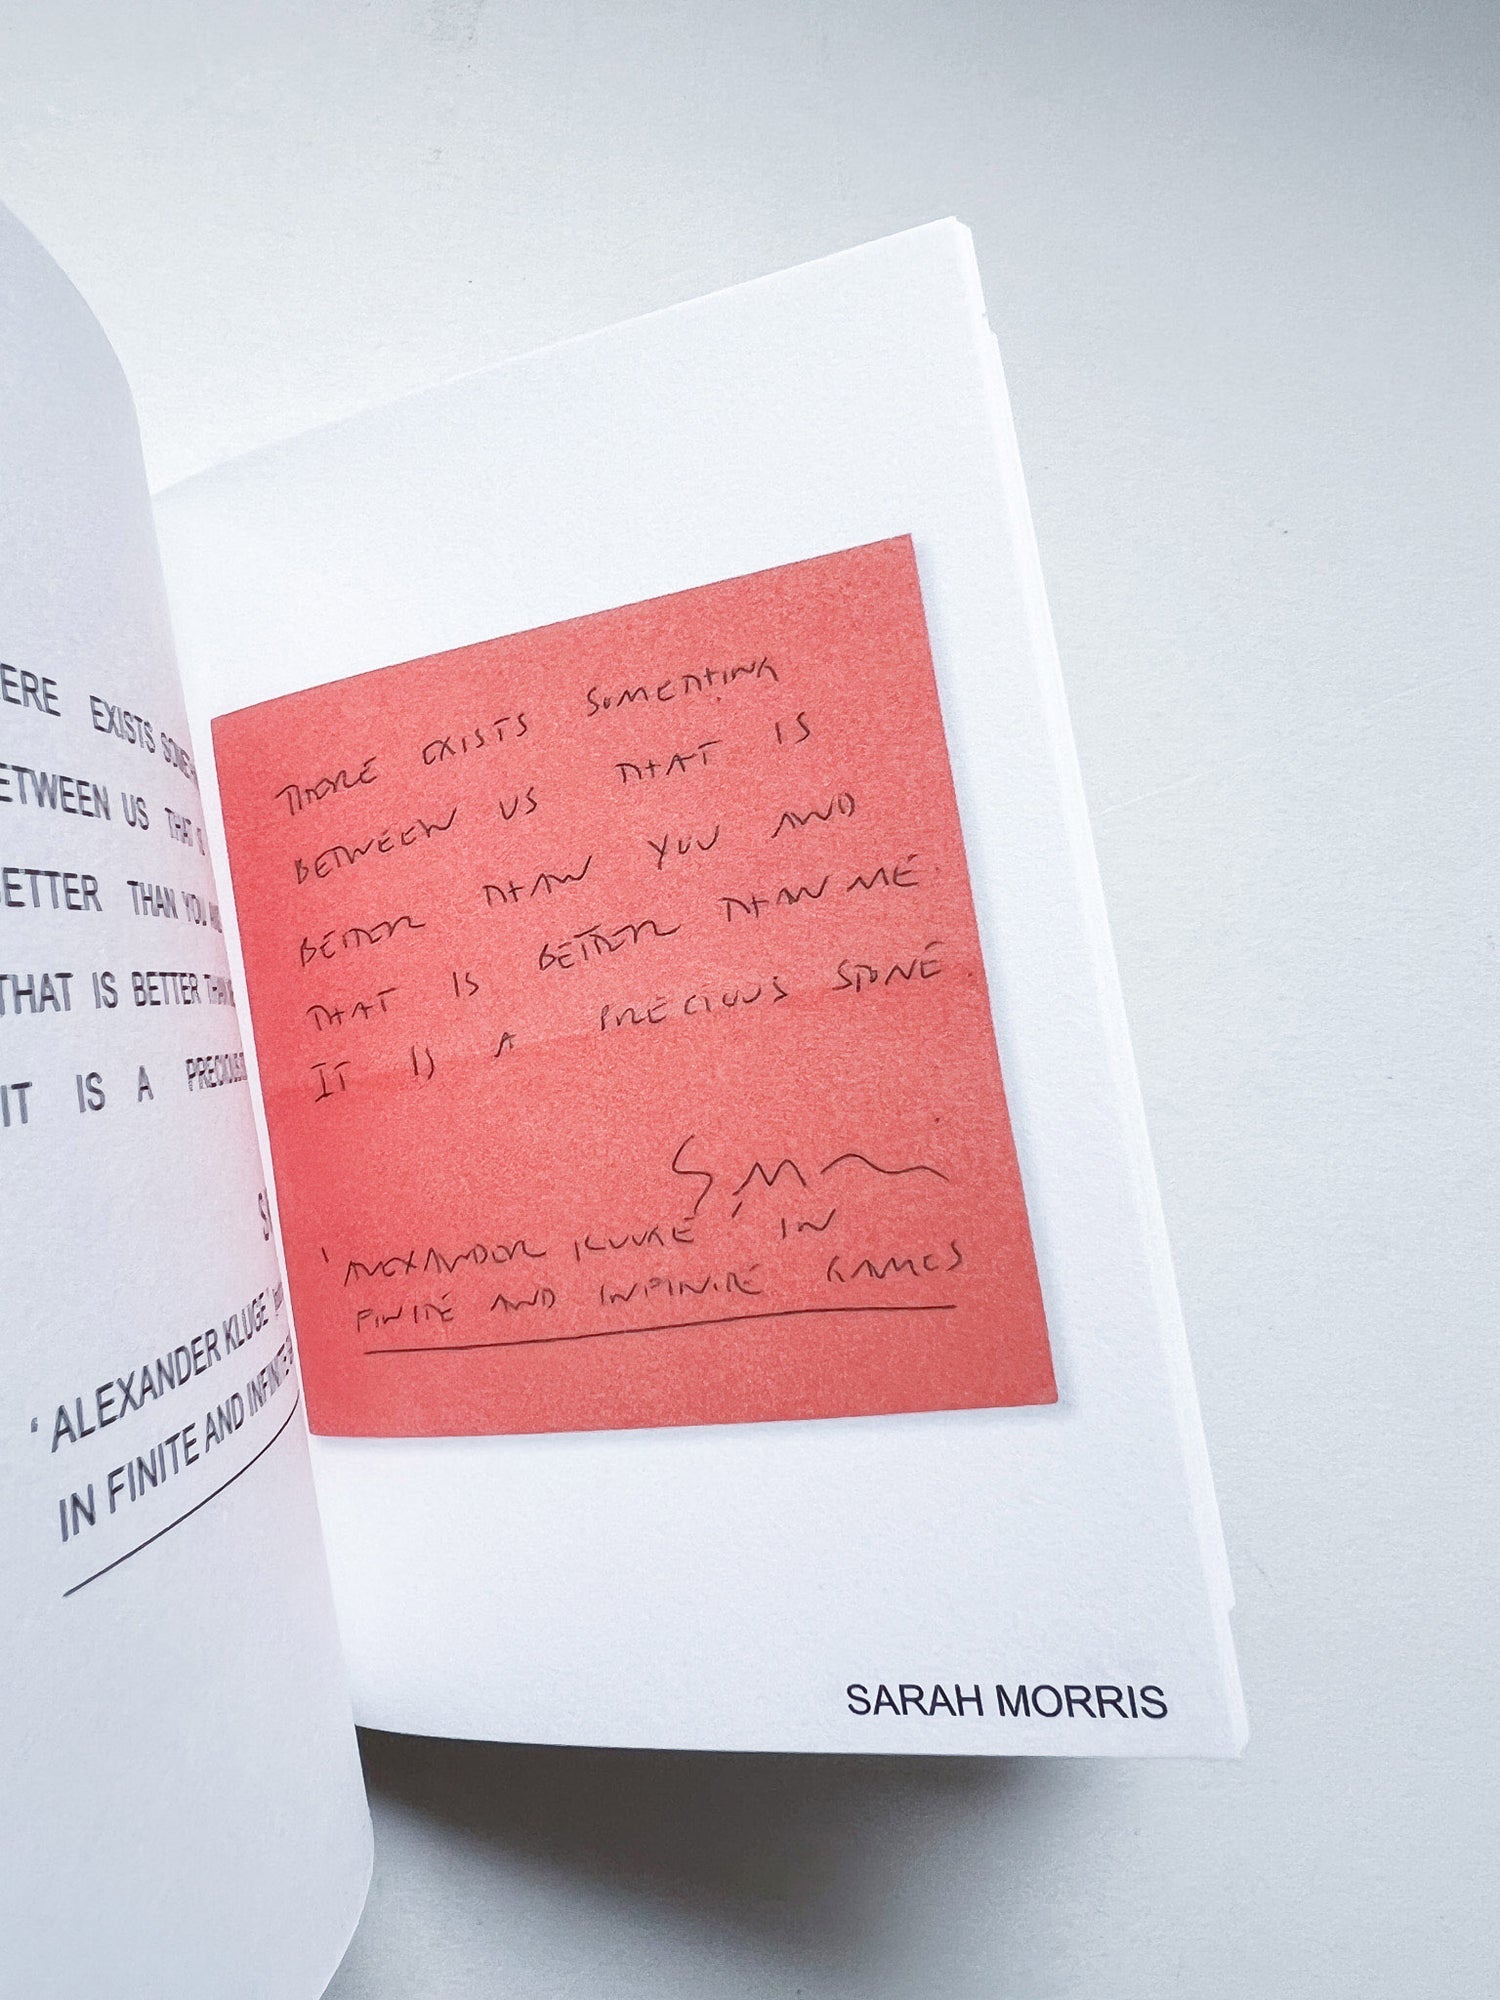 ERE EXISTS SOME
ETWEEN US THAT IS
BETTER THAN YOU AND
THAT IS BETTER THAN
IT IS A PRECIOUS
S
‘ALEXANDER KLUGE’
IN FINITE AND INFINITE
THERE EXISTS SOMETHING
BETWEEN US THAT IS
BETTER THAN YOU AND
THAT IS BETTER THAN ME.
IT IS A PRECIOUS STONE.
SM
'ALEXANDER KLUGE' IN
FINITE AND INFINITE GAMES
SARAH MORRIS